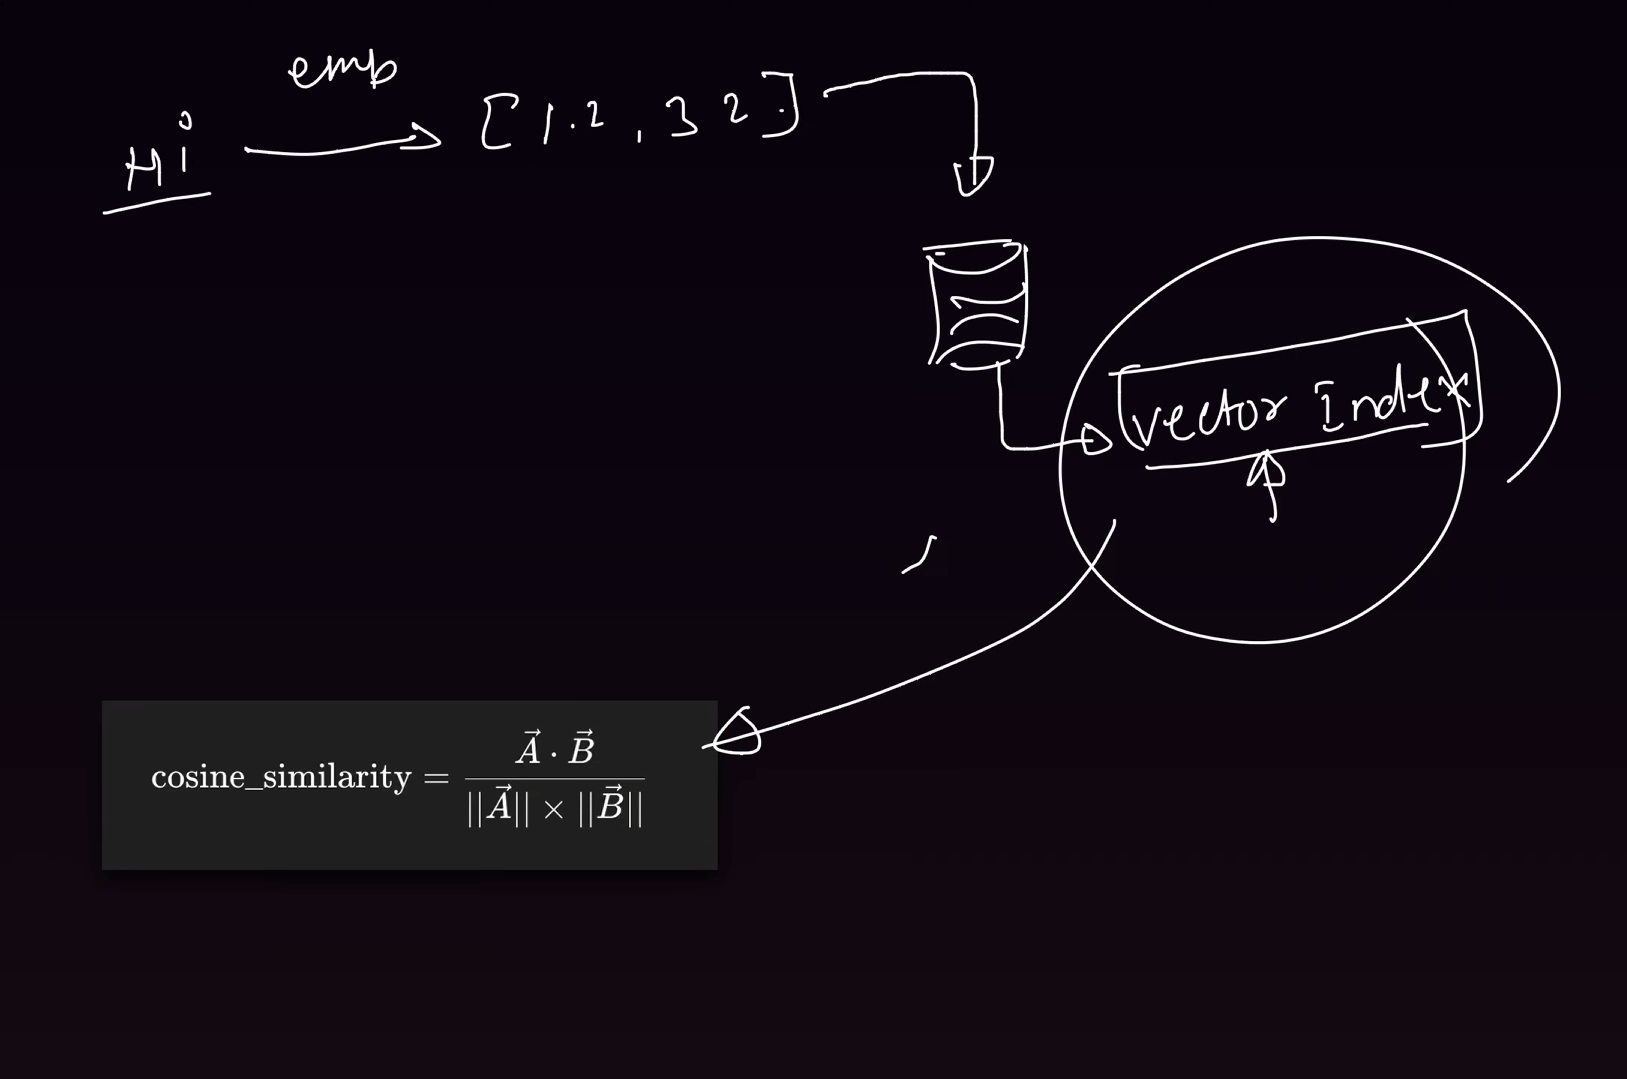 emb
Hi
[1.2, 3 2.]
vector Index
cosine_similarity = \frac{\vec{A} \cdot \vec{B}}{||\vec{A}|| \times ||\vec{B}||}